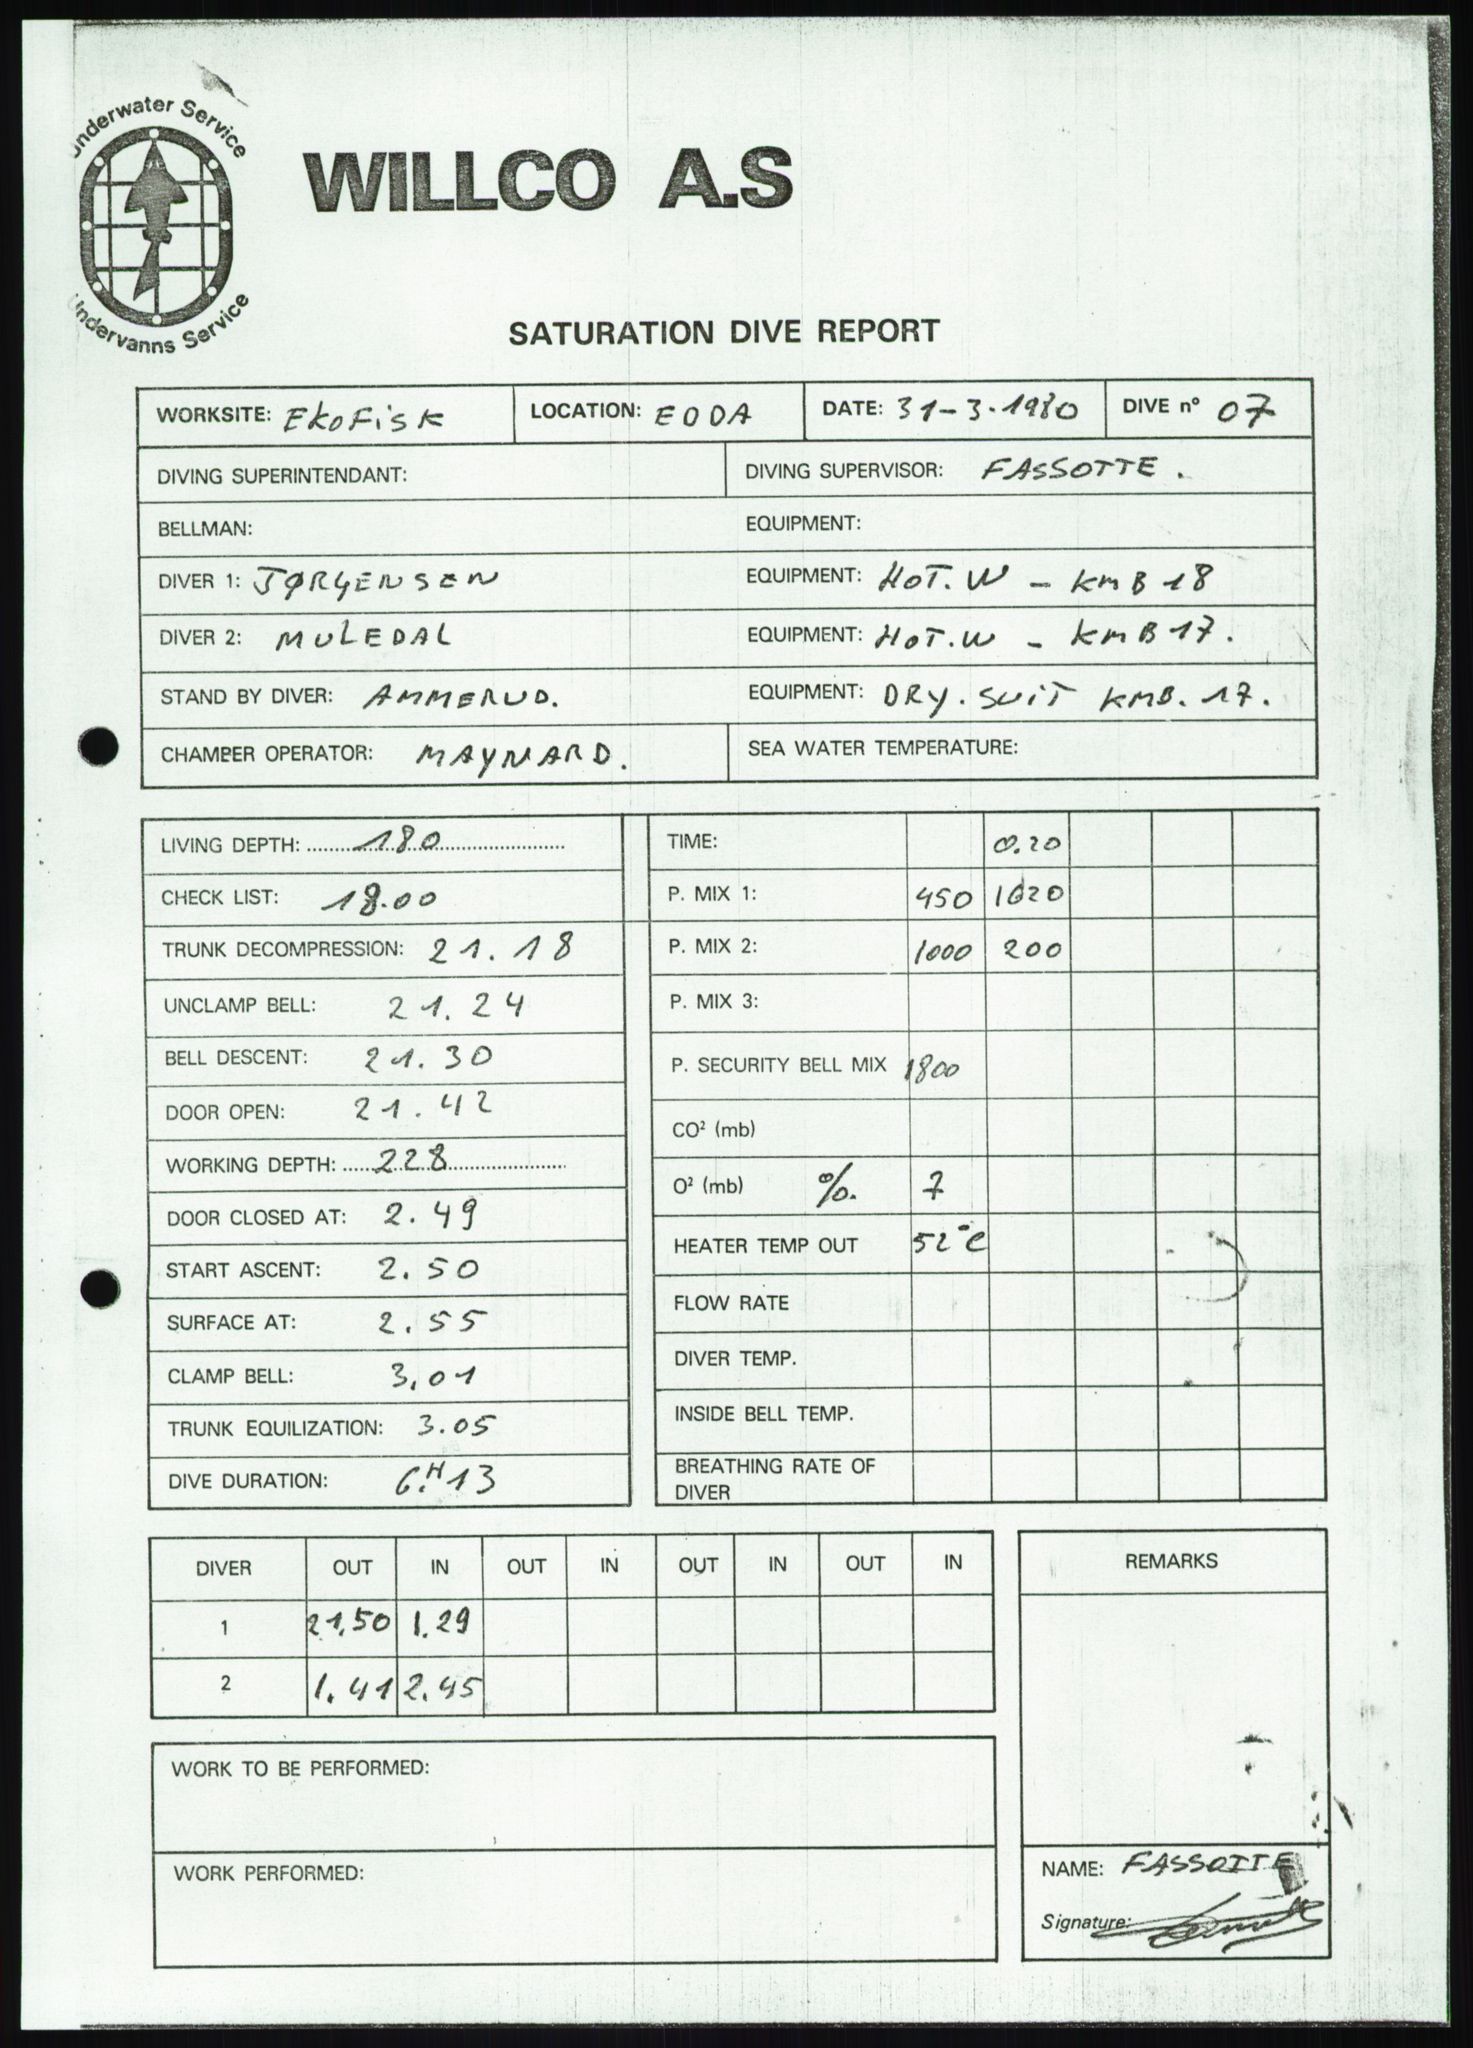 Underwater Service
Undervanns Service
WILLCO A.S
SATURATION DIVE REPORT
WORKSITE: EKOFISK LOCATION: EODA DATE: 31-3-1980 DIVE nº 07
DIVING SUPERINTENDANT: DIVING SUPERVISOR: FASSOTTE.
BELLMAN: EQUIPMENT:
DIVER 1: JØRGENSEN EQUIPMENT: HOT.W - KMB 18
DIVER 2: MULEDAL EQUIPMENT: HOT.W - KMB 17.
STAND BY DIVER: AMMERUD. EQUIPMENT: DRY. SUIT KMB. 17.
CHAMBER OPERATOR: MAYNARD. SEA WATER TEMPERATURE:
LIVING DEPTH: 180
CHECK LIST: 18.00
TRUNK DECOMPRESSION: 21.18
UNCLAMP BELL: 21.24
BELL DESCENT: 21.30
DOOR OPEN: 21.42
WORKING DEPTH: 228
DOOR CLOSED AT: 2.49
START ASCENT: 2.50
SURFACE AT: 2.55
CLAMP BELL: 3.01
TRUNK EQUILIZATION: 3.05
DIVE DURATION: 6.H13
TIME: 0.20
P. MIX 1: 450 1020
P. MIX 2: 1000 200
P. MIX 3:
P. SECURITY BELL MIX 1800
CO² (mb)
O² (mb) %. 7
HEATER TEMP OUT 52°C
FLOW RATE
DIVER TEMP.
INSIDE BELL TEMP.
BREATHING RATE OF
DIVER
DIVER OUT IN OUT IN OUT IN OUT IN
1 21.50 1.29
2 1.41 2.45
WORK TO BE PERFORMED:
WORK PERFORMED:
REMARKS
NAME: FASSOTTE
Signature: